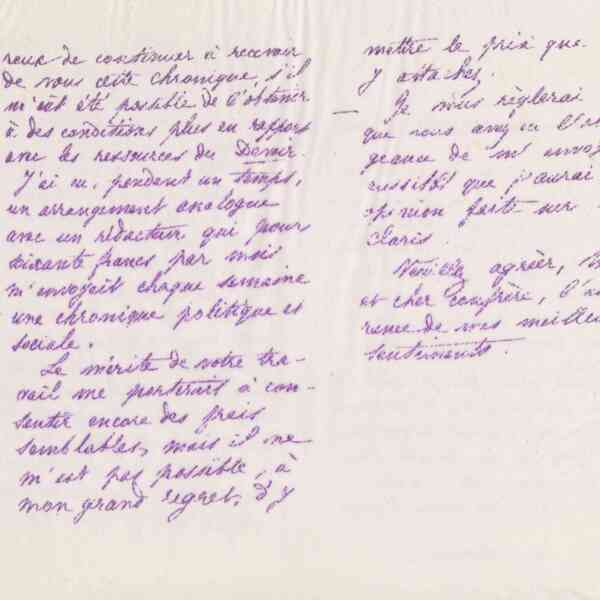 reux de continuer à recevoir
de vous cette chronique, s'il
m'eut été possible de l'obtenir
à des conditions plus en rapport
avec les ressources du Devoir.
J'ai eu, pendant un temps,
un arrangement analogue
avec un rédacteur qui pour
soixante francs par mois
m'envoyait chaque semaine
une chronique politique et
sociale.
Le mérite de votre tra-
vail me porterait à con-
sentir encore des frais
semblables, mais il ne
m'est pas possible, à
mon grand regret, d'y
mettre le prix que
y attachez.
— Je vous règlerai
que vous avez eu l'
geance de m'envoy
aussitôt que j'aurai
opinion faite sur
Claris.
Veuillez agréer,
et cher confrère, l'
rance de mes meilleu
sentiments.